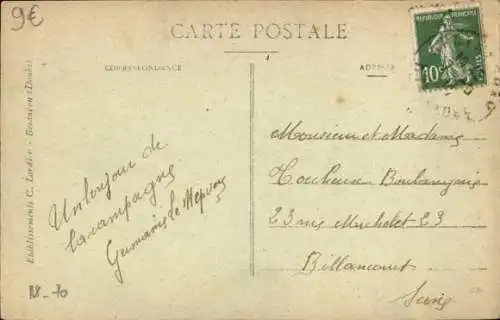 9€
CARTE POSTALE
CORRESPONDANCE
ADRESSE
REPUBLIQUE FRANÇAISE
10
POSTES
Etablissements C. Lardier - Besançon (Doubs)
Un bonjour de
la campagne
Germaine de
Monsieur et Madame
Boulangerie
23 rue Michelet 23
Billancourt
Seine